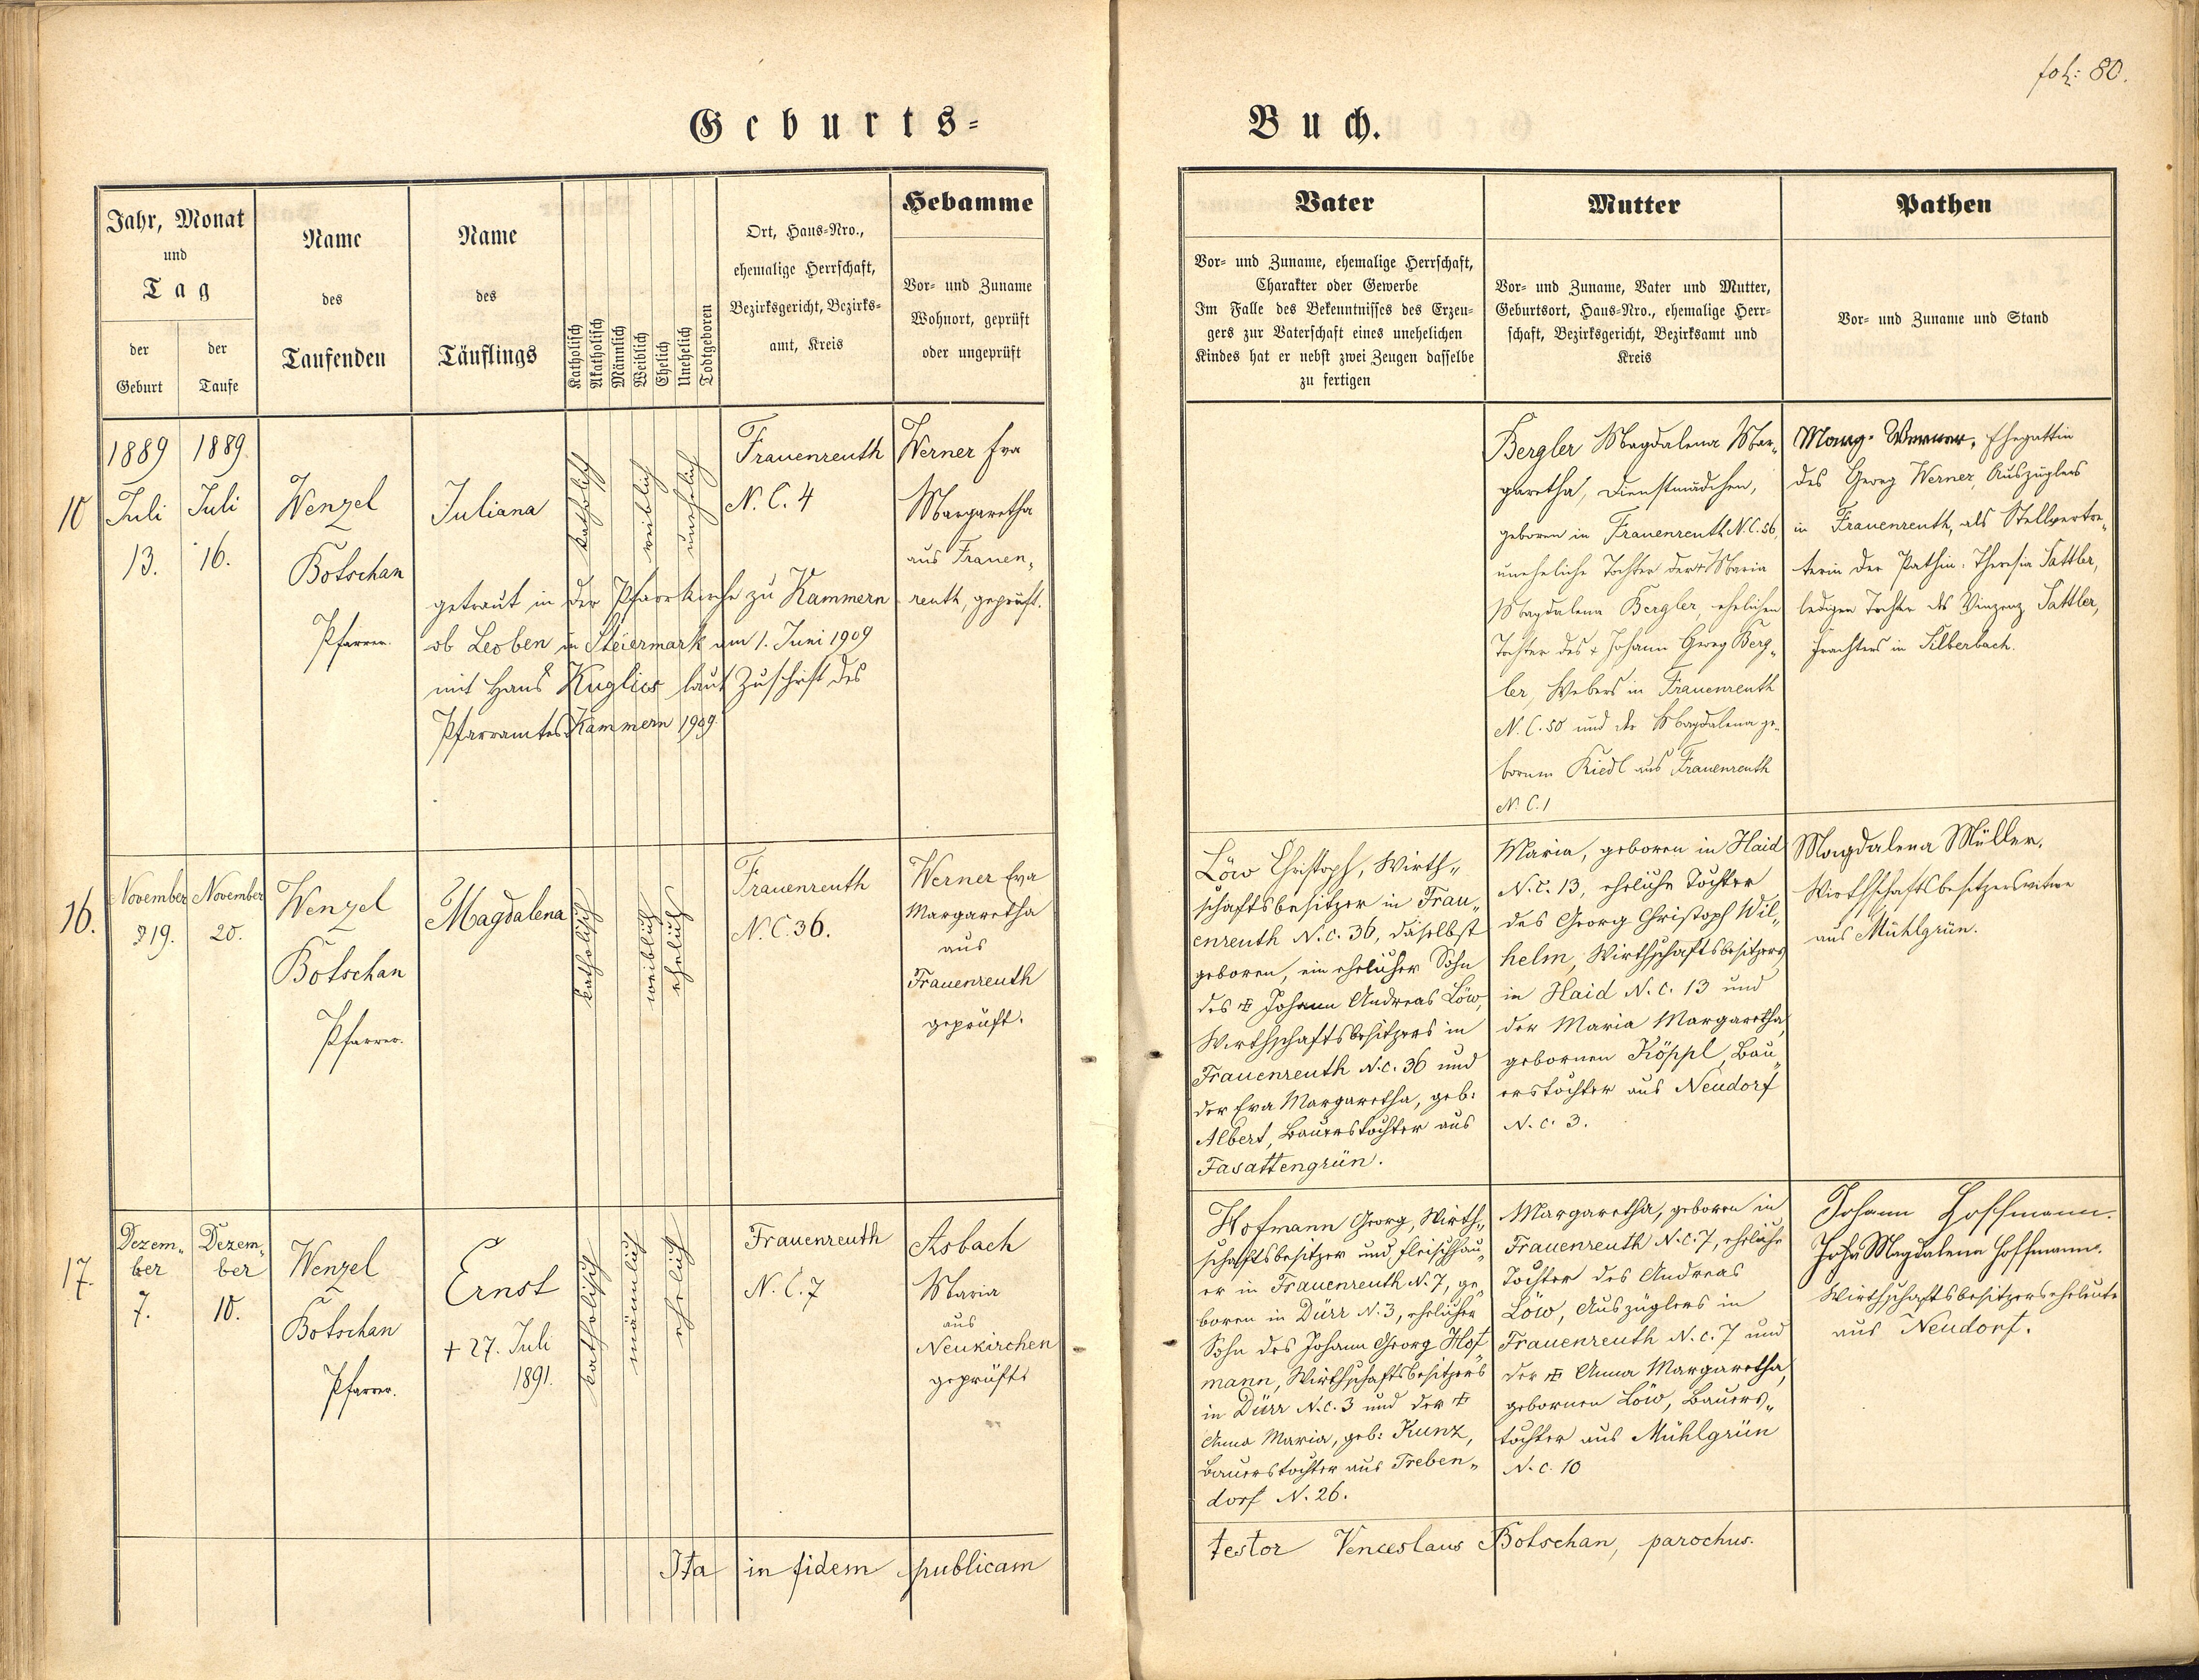 fol: 80.
Geburts-
Buch.
Jahr, Monat
und
Tag
der
Geburt
der
Taufe
Name
des
Taufenden
Name
des
Täuflings
Katholisch
Akatholisch
Männlich
Weiblich
Ehelich
Unehelich
Todtgeboren
Ort, Haus-Nro.,
ehemalige Herrschaft,
Bezirksgericht, Bezirks-
amt, Kreis
Hebamme
Vor- und Zuname
Wohnort, geprüft
oder ungeprüft
Vater
Vor- und Zuname, ehemalige Herrschaft,
Charakter oder Gewerbe
Im Falle des Bekenntnisses des Erzeu-
gers zur Vaterschaft eines unehelichen
Kindes hat er nebst zwei Zeugen dasselbe
zu fertigen
Mutter
Vor- und Zuname, Vater und Mutter,
Geburtsort, Haus-Nro., ehemalige Herr-
schaft, Bezirksgericht, Bezirksamt und
Kreis
Pathen
Vor- und Zuname und Stand
10
1889
Juli
13.
1889
Juli
16.
Wenzel
Botschan
Pfarrer.
Juliana
katholisch
weiblich
unehelich
getraut in der Pfarrkirche zu Kammern
ob Leoben in Steiermark am 1. Juni 1909
mit Hans Kuglics laut Zuschrift des
Pfarramtes Kammern 1909.
Frauenreuth
N. C. 4
Werner Eva
Margaretha
aus Frauen„
reuth, geprüft.
Bergler Magdalena Mar„
garetha, Dienstmädchen,
geboren in Frauenreuth N.C. 56,
uneheliche Tochter der † Maria
Magdalena Bergler, ehelichen
Tochter des † Johann Georg Berg„
ler, Webers in Frauenreuth
N. C. 50 und der Magdalena ge„
bornen Riedl aus Frauenreuth
N. C. 1
Marg. Werner, Ehegattin
des Georg Werner, Auszüglers
in Frauenreuth, als Stellvertre„
terin der Pathin: Theresia Sattler,
ledigen Tochter des Vinzenz Sattler,
in Silberbach.
16.
November
19.
November
20.
Wenzel
Botschan
Pfarrer.
Magdalena
katholisch
weiblich
ehelich
Frauenreuth
N. C. 36.
Werner Eva
Margaretha
aus
Frauenreuth
geprüft.
Löw Christoph, Wirth„
schaftsbesitzer in Frau„
enreuth N. c. 36, daselbst
geboren, ein ehelicher Sohn
des † Johann Andreas Löw,
Wirthschaftsbesitzers in
Frauenreuth N. c. 36 und
der Eva Margaretha, geb:
Albert, Bauerstochter aus
Fasattengrün.
Maria, geboren in Haid
N. c. 13, eheliche Tochter
des Georg Christoph Wil„
helm, Wirthschaftsbesitzers
in Haid N. c. 13 und
der Maria Margaretha,
gebornen Köppl, Bau„
erstochter aus Neudorf
N. c. 3.
Magdalena Müller.
Wirthschaftsbesitzerswitwe
aus Mühlgrün.
17.
Dezem„
ber
7.
Dezem„
ber
10.
Wenzel
Botschan
Pfarrer.
Ernst
† 27. Juli
1891.
katholisch
männlich
ehelich
Frauenreuth
N. C. 7
Asbach
Maria
aus
Neukirchen
geprüft
Hofmann Georg, Wirth„
schaftsbesitzer und Fleischhau„
er in Frauenreuth N. 7, ge„
boren in Dürr N. 3, ehelicher
Sohn des Johann Georg Hof„
mann, Wirthschaftsbesitzers
in Dürr N. c. 3 und der †
Anna Maria, geb: Kunz,
Bauerstochter aus Treben„
dorf N. 26.
Margaretha, geboren in
Frauenreuth N. c. 7, eheliche
Tochter des Andreas
Löw, Auszüglers in
Frauenreuth N. c. 7 und
der † Anna Margaretha,
gebornen Löw, Bauers„
tochter aus Mühlgrün
N. c. 10
Johann Hoffmann.
Magdalena Hoffmann.
Wirthschaftsbesitzerseheleute
aus Neudorf.
Ita in fidem publicam
testor Venceslaus Botschan, parochus.